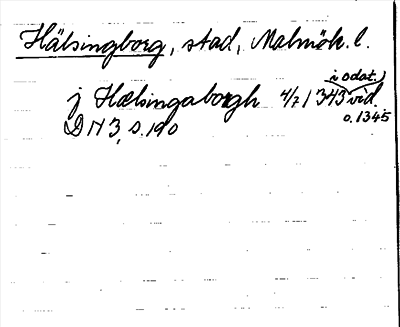 Hälsingborg, stad, Malmöh. l.
j Hælsingaborgh 4/7 1343 vid.
i odat.
o. 1345
DN 3, s. 190